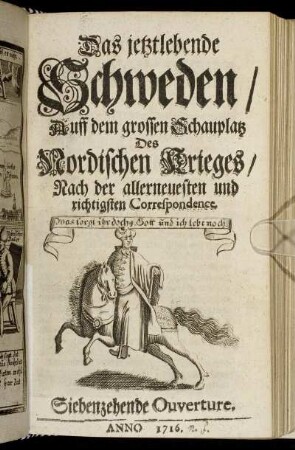 Das jetztlebende
Schweden/
Auff dem grossen Schauplatz
Des
Nordischen Krieges/
Nach der allerneuesten und
richtigsten Correspondence.
Was sorgt ihr doch? Gott und ich lebt noch.
Siebenzehende Ouverture.
ANNO 1716.